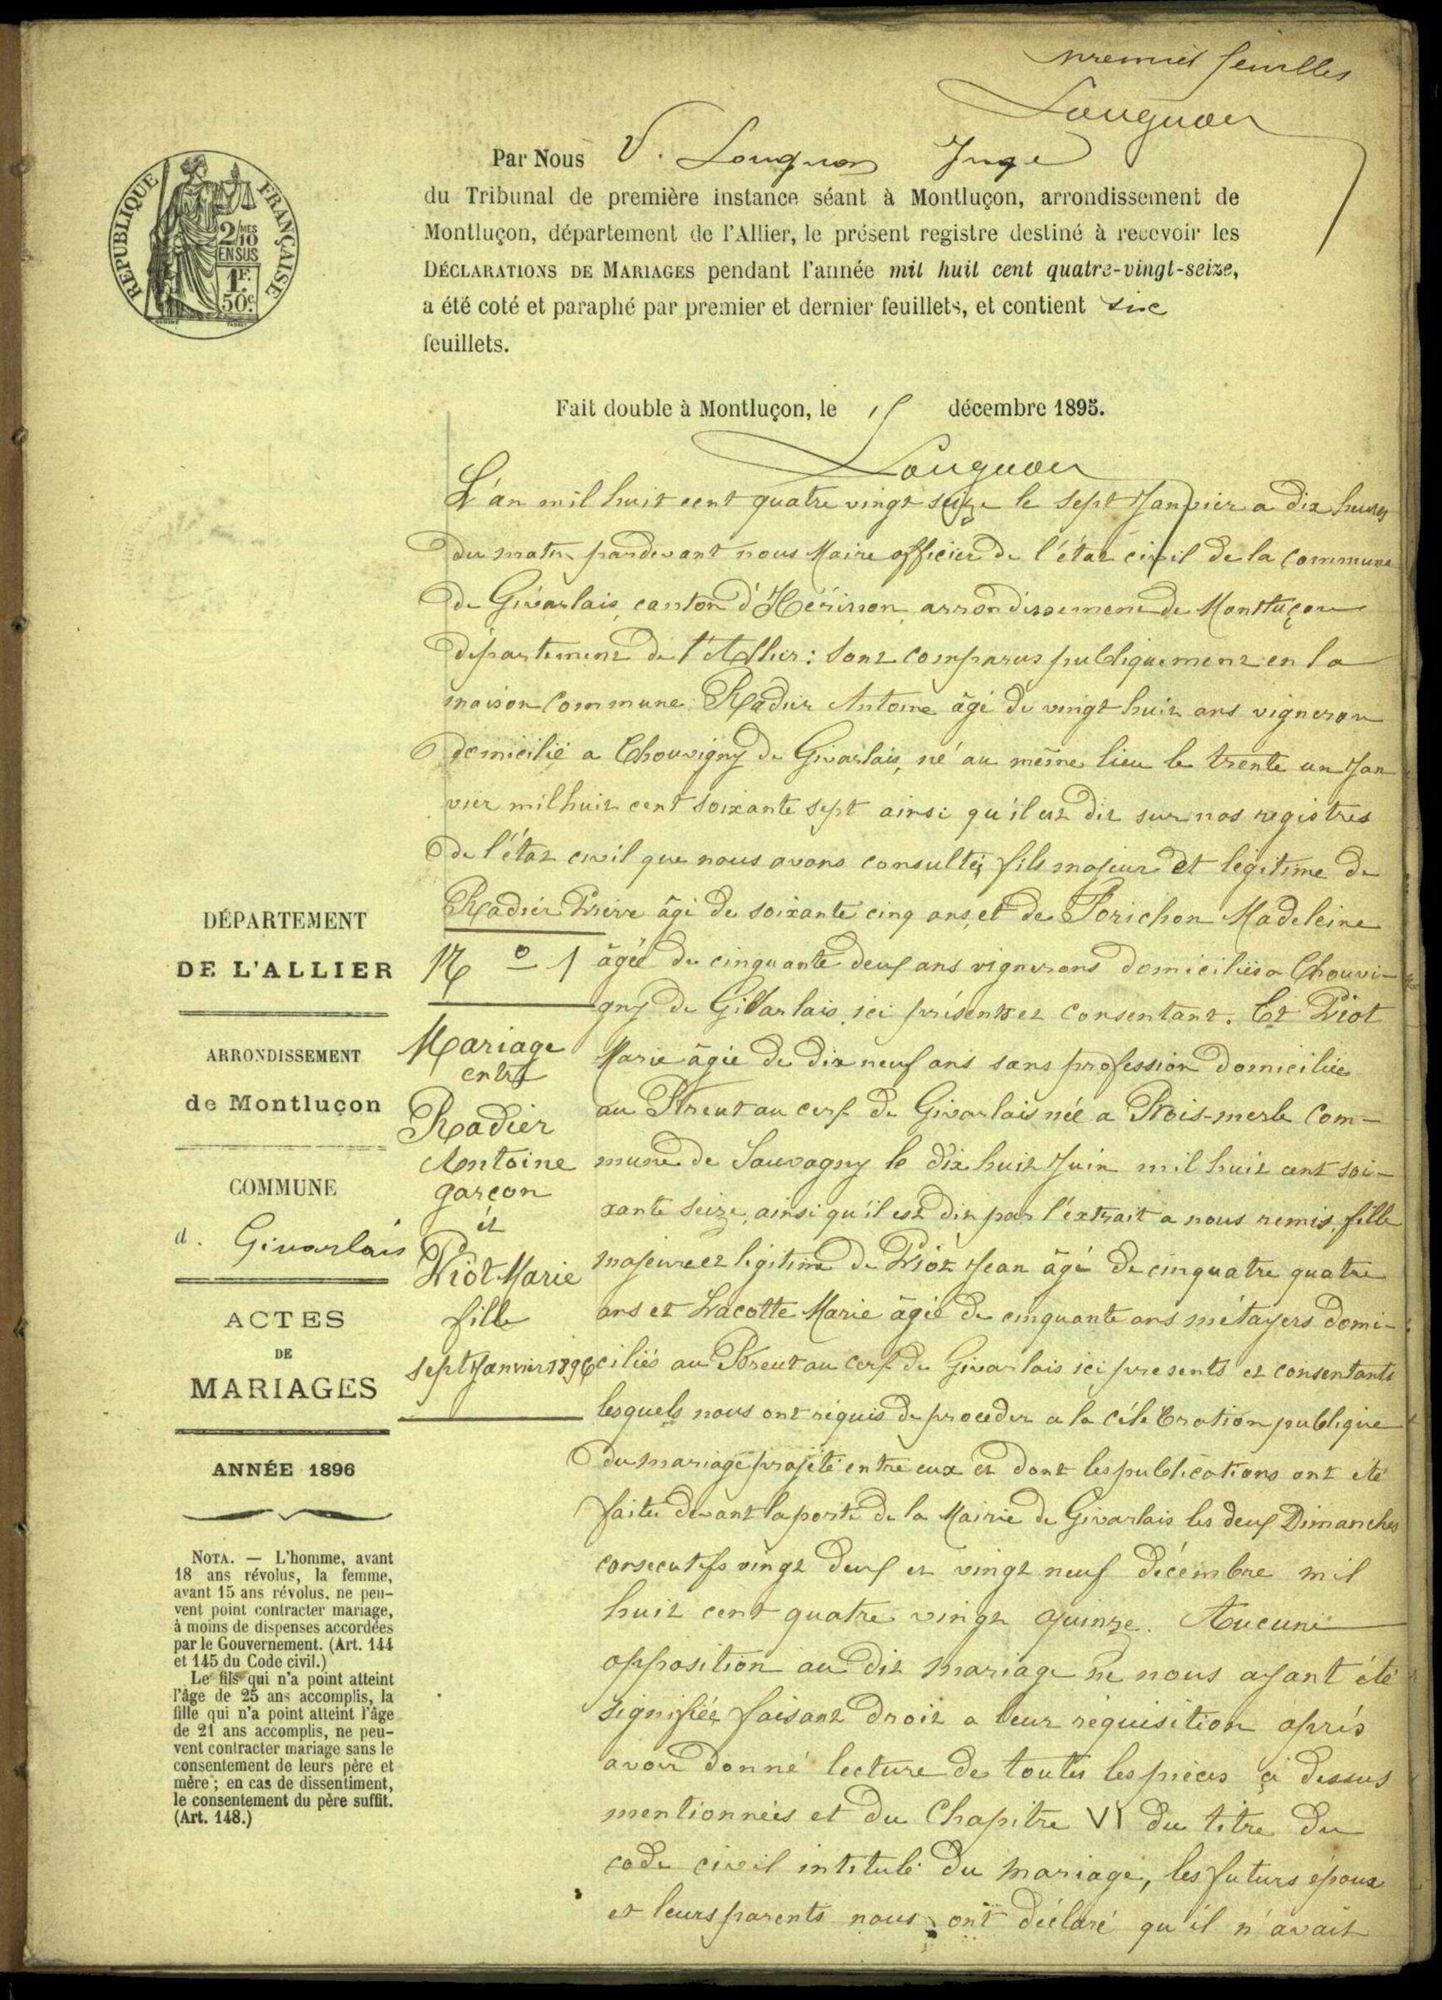 premier feuillet
Louguon
RÉPUBLIQUE FRANÇAISE
2/10 MES
EN SUS
1F.
50c.
Par Nous V. Louguon Juge
du Tribunal de première instance séant à Montluçon, arrondissement de
Montluçon, département de l'Allier, le présent registre destiné à recevoir les
DÉCLARATIONS DE MARIAGES pendant l'année mil huit cent quatre-vingt-seize,
a été coté et paraphé par premier et dernier feuillets, et contient six
feuillets.
Fait double à Montluçon, le 15 décembre 1895.
Louguon
L'an mil huit cent quatre vingt seize le sept Janvier a dix heures
du matin pardevant nous Maire officier de l'état civil de la commune
de Givarlais, canton d'Hérisson, arrondissement de Montluçon
département de l'Allier : sont comparus publiquement en la
maison commune Radier Antoine âgé de vingt huit ans vigneron
domicilié a Chouvigny de Givarlais, né au même lieu le trente un Jan
vier mil huit cent soixante sept ainsi qu'il est dit sur nos registres
de l'état civil que nous avons consultés, fils majeur et légitime de
Radier Pierre âgé de soixante cinq ans, et de Forichon Madeleine
âgée de cinquante deux ans vignerons domiciliés a Chouvi-
gny de Givarlais, ici présents et consentant. Et Piot
Marie âgée de dix neuf ans sans profession domiciliée
au Breut au cerf de Givarlais née a Bois-merle com-
mune de Sauvagny le dix huit Juin mil huit cent soi-
xante seize, ainsi qu'il est dit par l'extrait a nous remis, fille
majeure et légitime de Piot Jean âgé de cinquatre quatre
ans et Lacotte Marie âgée de cinquante ans métayers domi-
ciliés au Breut au cerf de Givarlais ici présents et consentants
lesquels nous ont réquis de procéder a la célébration publique
du mariage projété entre eux et dont les publications ont été
faites devant la porte de la Mairie de Givarlais les deux Dimanches
consécutifs vingt deux et vingt neuf décembre mil
huit cent quatre vingt quinze. Aucune
opposition au dit mariage ne nous ayant été
signifiée, faisant droit a leur réquisition après
avoir donné lecture de toutes les pièces ci dessus
mentionnées et du Chapitre VI du titre du
code civil intitulé du mariage, les futurs époux
et leurs parents nous ont déclaré qu'il n'avait
N° 1
Mariage
entre
Radier
Antoine
garçon
et
Piot Marie
fille
sept Janvier 1896
DÉPARTEMENT
DE L'ALLIER
ARRONDISSEMENT
de Montluçon
COMMUNE
d. Givarlais
ACTES
DE
MARIAGES
ANNÉE 1896
NOTA. — L'homme, avant
18 ans révolus, la femme,
avant 15 ans révolus, ne peu-
vent point contracter mariage,
à moins de dispenses accordées
par le Gouvernement. (Art. 144
et 145 du Code civil.)
Le fils qui n'a point atteint
l'âge de 25 ans accomplis, la
fille qui n'a point atteint l'âge
de 21 ans accomplis, ne peu-
vent contracter mariage sans le
consentement de leurs père et
mère ; en cas de dissentiment,
le consentement du père suffit.
(Art. 148.)